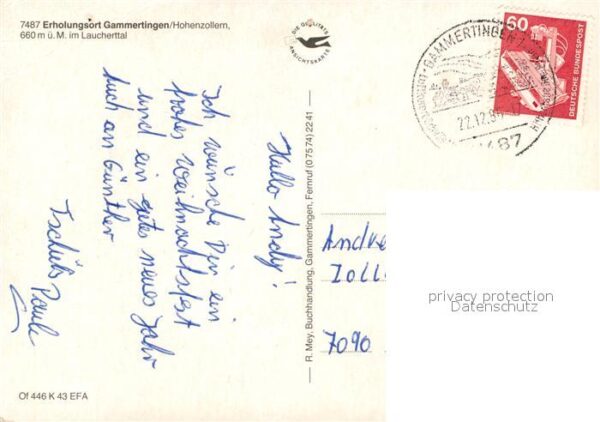 7487 Erholungsort Gammertingen/Hohenzollern,
660 m ü. M. im Laucherttal
DIE QUALITÄTS
ANSICHTSKARTE
Hallo Andy!
Ich wünsche Dir ein
frohes Weihnachtsfest
und ein gutes neues Jahr
auch an Günther
Tschüß
R. Mey, Buchhandlung, Gammertingen, Fernruf (07574) 2241
Of 446 K 43 EFA
60
DEUTSCHE BUNDESPOST
GAMMERTINGEN
22.12.8
7487
7090
privacy protection
Datenschutz